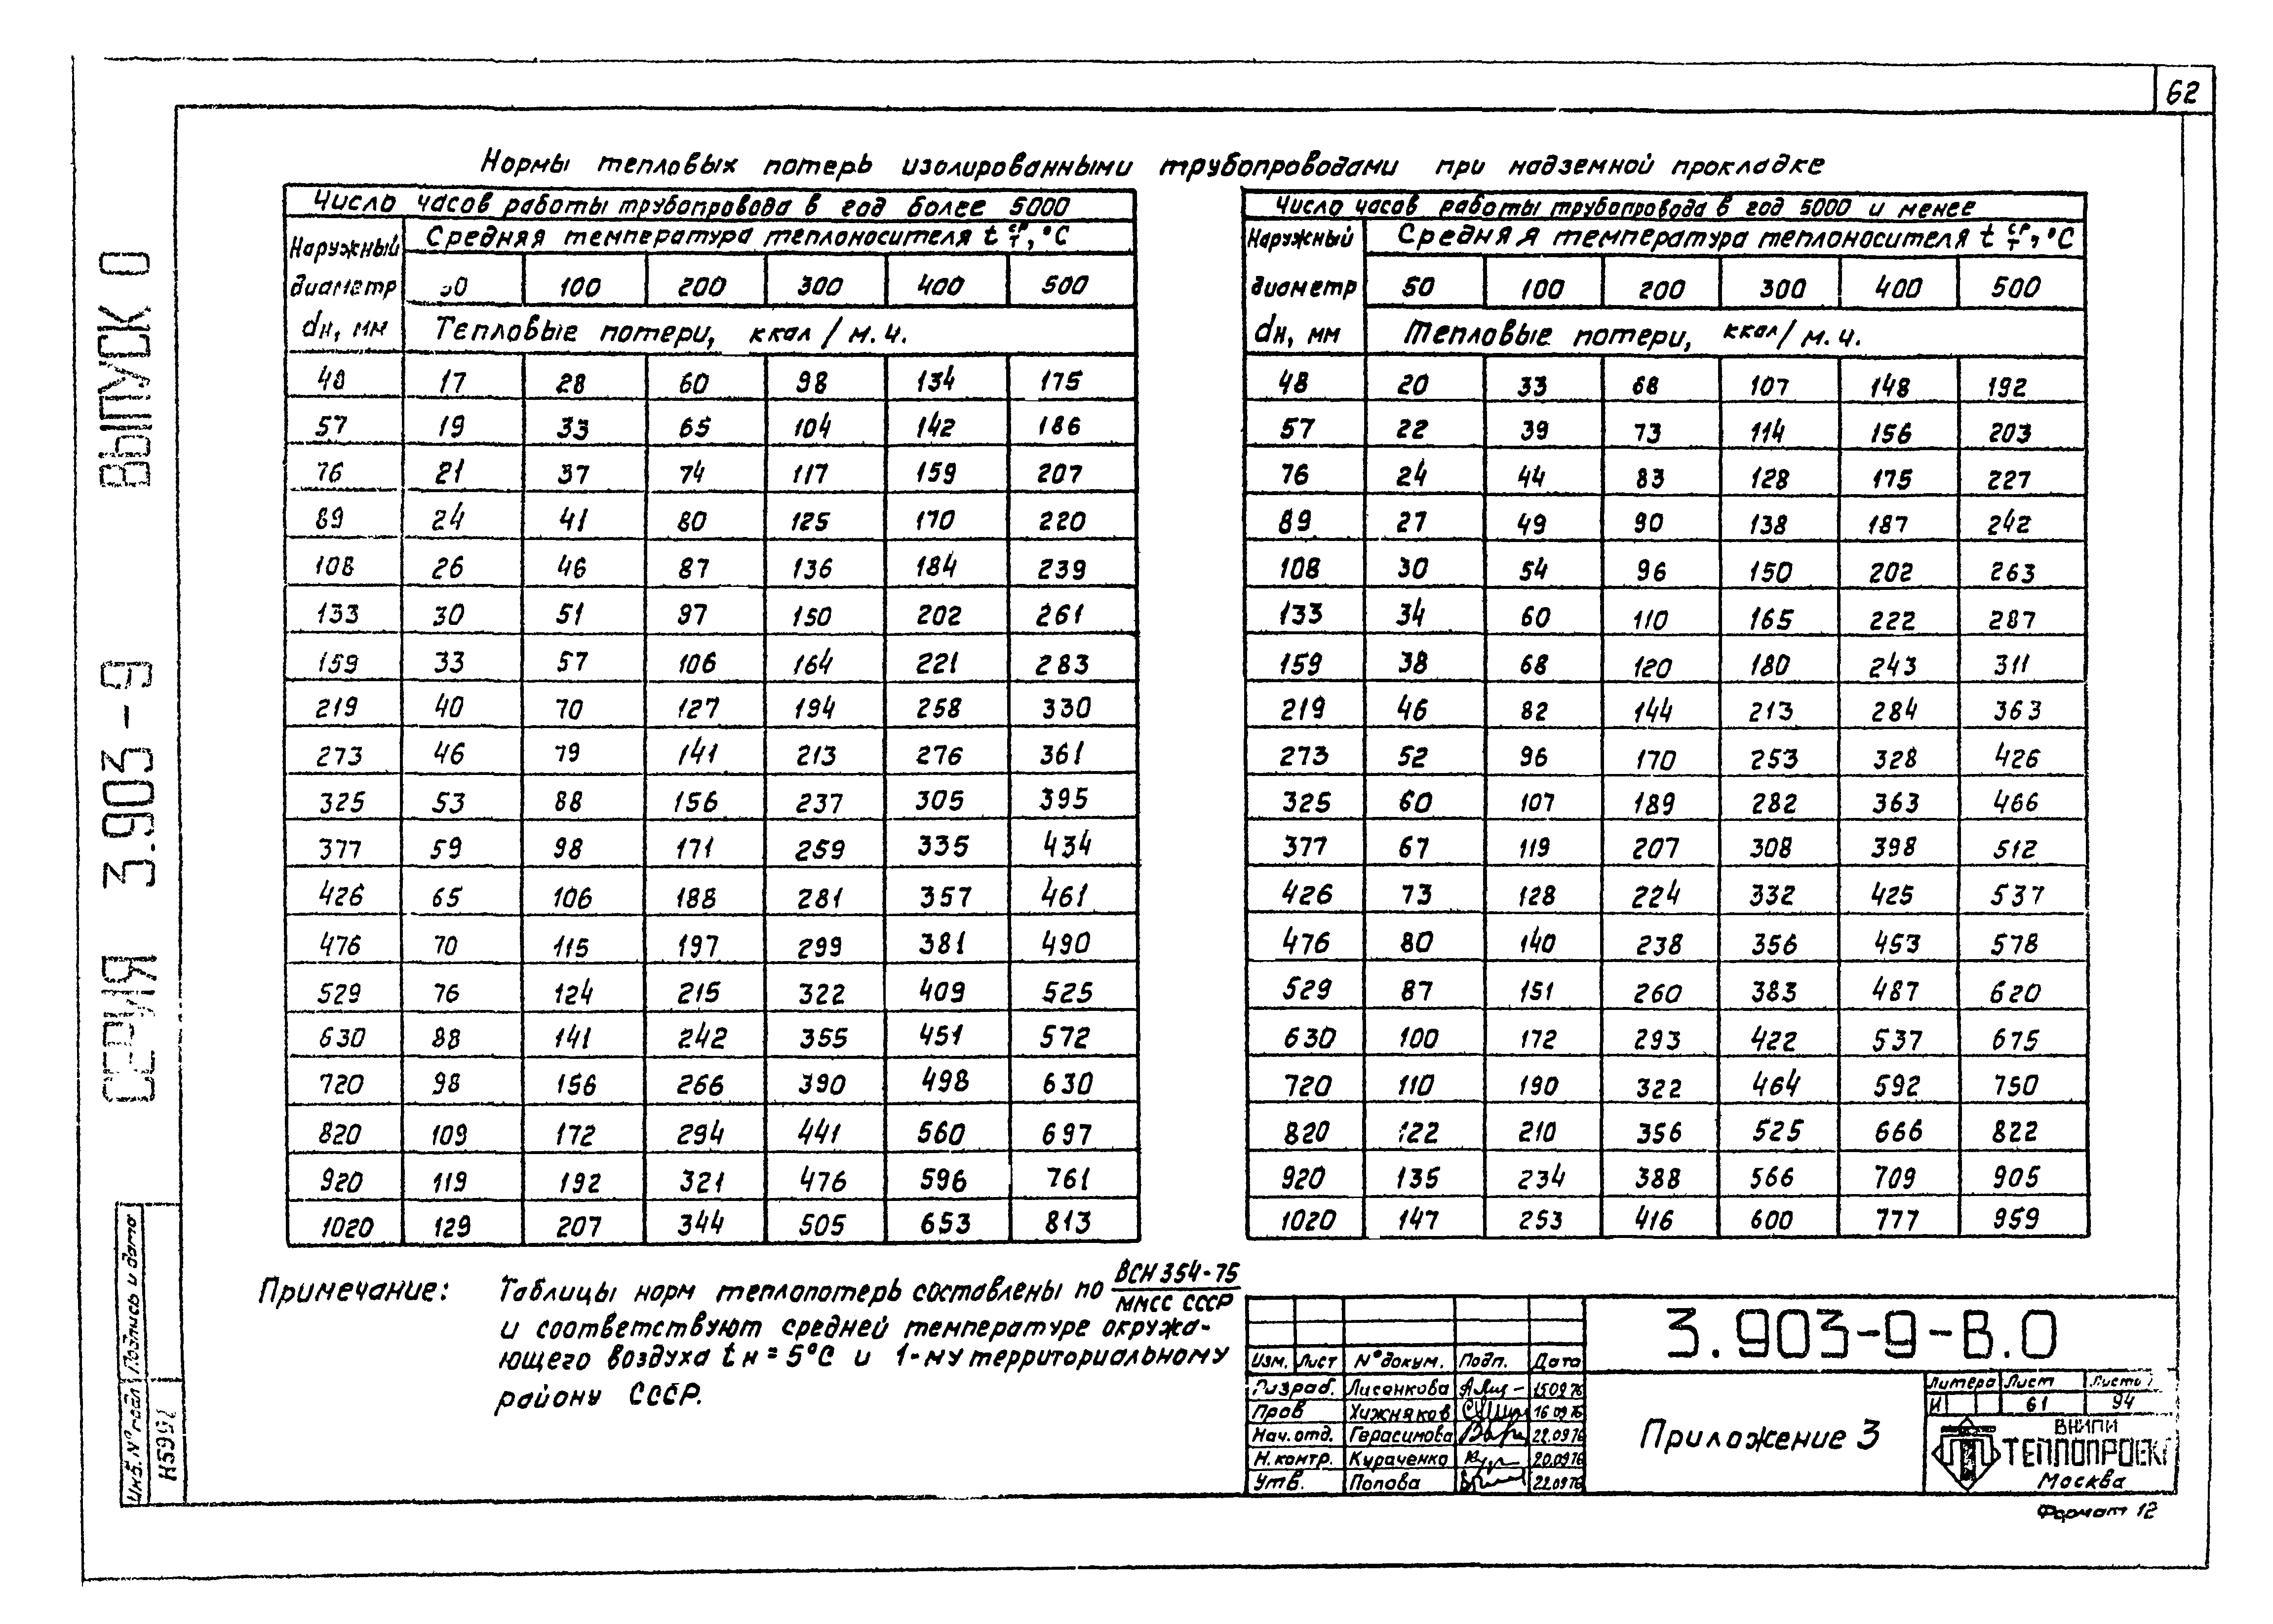 62
Нормы тепловых потерь изолированными трубопроводами при надземной прокладке
Число часов работы трубопровода в год более 5000
Наружный диаметр dн, мм
Средняя температура теплоносителя t ср т, °C
50 100 200 300 400 500
Тепловые потери, ккал/м.ч.
48 17 28 60 98 134 175
57 19 33 65 104 142 186
76 21 37 74 117 159 207
89 24 41 80 125 170 220
108 26 46 87 136 184 239
133 30 51 97 150 202 261
159 33 57 106 164 221 283
219 40 70 127 194 258 330
273 46 79 141 213 276 361
325 53 88 156 237 305 395
377 59 98 171 259 335 434
426 65 106 188 281 357 461
476 70 115 197 299 381 490
529 76 124 215 322 409 525
630 88 141 242 355 451 572
720 98 156 266 390 498 630
820 109 172 294 441 560 697
920 119 192 321 476 596 761
1020 129 207 344 505 653 813
Число часов работы трубопровода в год 5000 и менее
Наружный диаметр dн, мм
Средняя температура теплоносителя t ср т, °C
50 100 200 300 400 500
Тепловые потери, ккал/м.ч.
48 20 33 68 107 148 192
57 22 39 73 114 156 203
76 24 44 83 128 175 227
89 27 49 90 138 187 242
108 30 54 96 150 202 263
133 34 60 110 165 222 287
159 38 68 120 180 243 311
219 46 82 144 213 284 363
273 52 96 170 253 328 426
325 60 107 189 282 363 466
377 67 119 207 308 398 512
426 73 128 224 332 425 537
476 80 140 238 356 453 578
529 87 151 260 383 487 620
630 100 172 293 422 537 675
720 110 190 322 464 592 750
820 122 210 356 525 666 822
920 135 234 388 566 709 905
1020 147 253 416 600 777 959
Примечание: Таблицы норм теплопотерь составлены по ВСН 354-75
ММСС СССР
и соответствуют средней температуре окружа-
ющего воздуха tн = 5°C и 1-му территориальному
району СССР.
СЕРИЯ 3.903-9 ВЫПУСК 0
Инв. № подл Подпись и дата
3.903-9-В.0
Изм. Лист № докум. Подп. Дата
Разраб. Лисенкова 15.09.76
Пров Хижняков 16.09.76
Нач. отд. Герасимова 22.09.76
Н. контр. Кураченко 20.09.76
Утв. Попова 22.09.76
Приложение 3
Литера Лист
И 61 94
ВНИПИ
ТЕПЛОПРОЕКТ
Москва
Формат 12